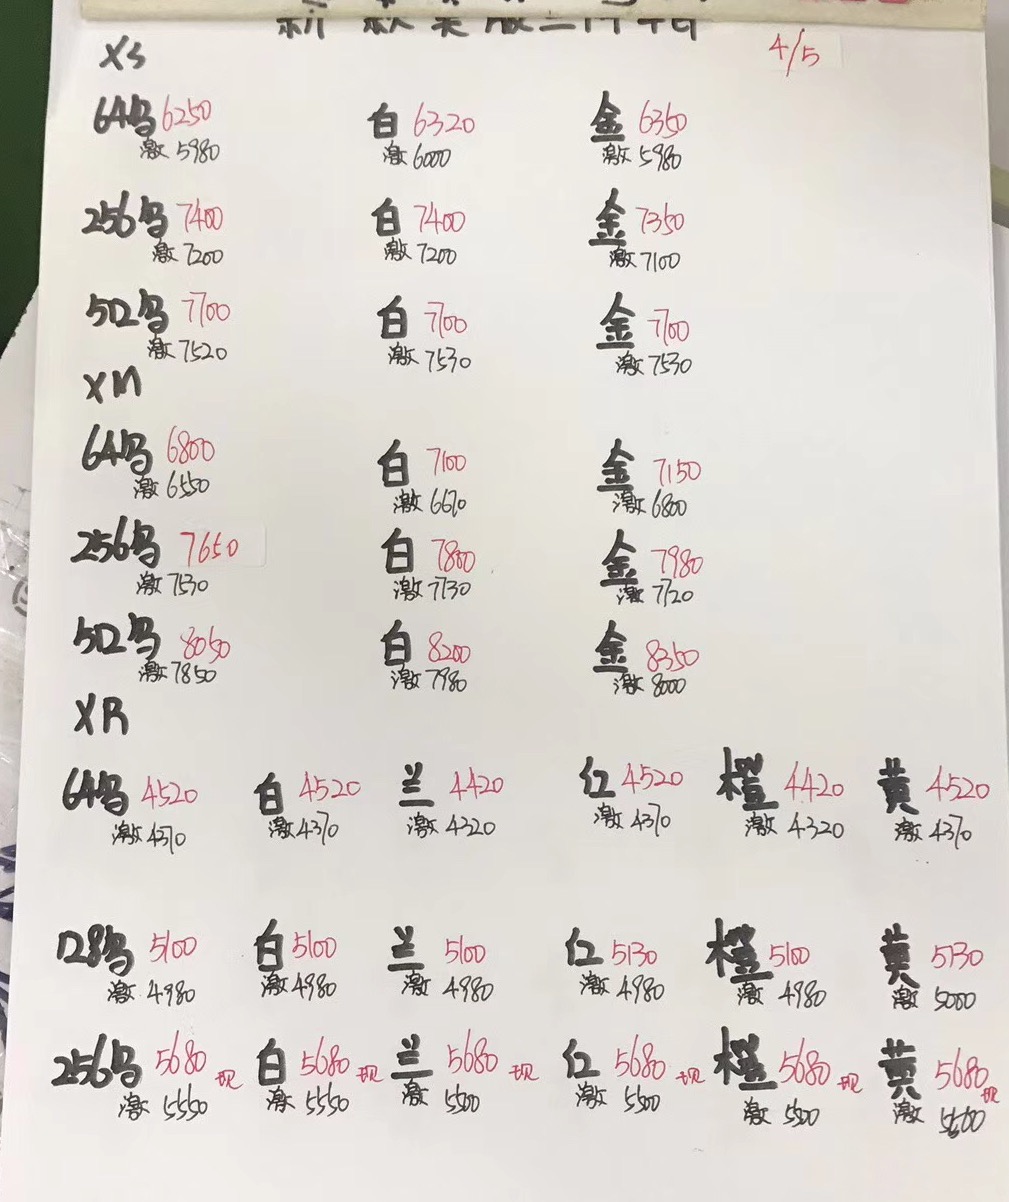 4/5
XS
64乌 6250 白 6320 金 6350
激 5980 激 6000 激 5980
256乌 7400 白 7400 金 7350
激 7200 激 7200 激 7100
512乌 7700 白 7700 金 7700
激 7520 激 7530 激 7530
XM
64乌 6800 白 7100 金 7150
激 6550 激 6670 激 6800
256乌 7650 白 7800 金 7980
激 7530 激 7730 激 7720
512乌 8050 白 8200 金 8350
激 7850 激 7980 激 8000
XR
64乌 4520 白 4520 兰 4420 红 4520 橙 4420 黄 4520
激 4370 激 4370 激 4320 激 4370 激 4320 激 4370
128乌 5100 白 5100 兰 5100 红 5130 橙 5100 黄 5130
激 4980 激 4980 激 4980 激 4980 激 4980 激 5000
256乌 5680 现 白 5680 现 兰 5680 现 红 5680 现 橙 5680 现 黄 5680 现
激 5550 激 5550 激 5500 激 5500 激 5500 激